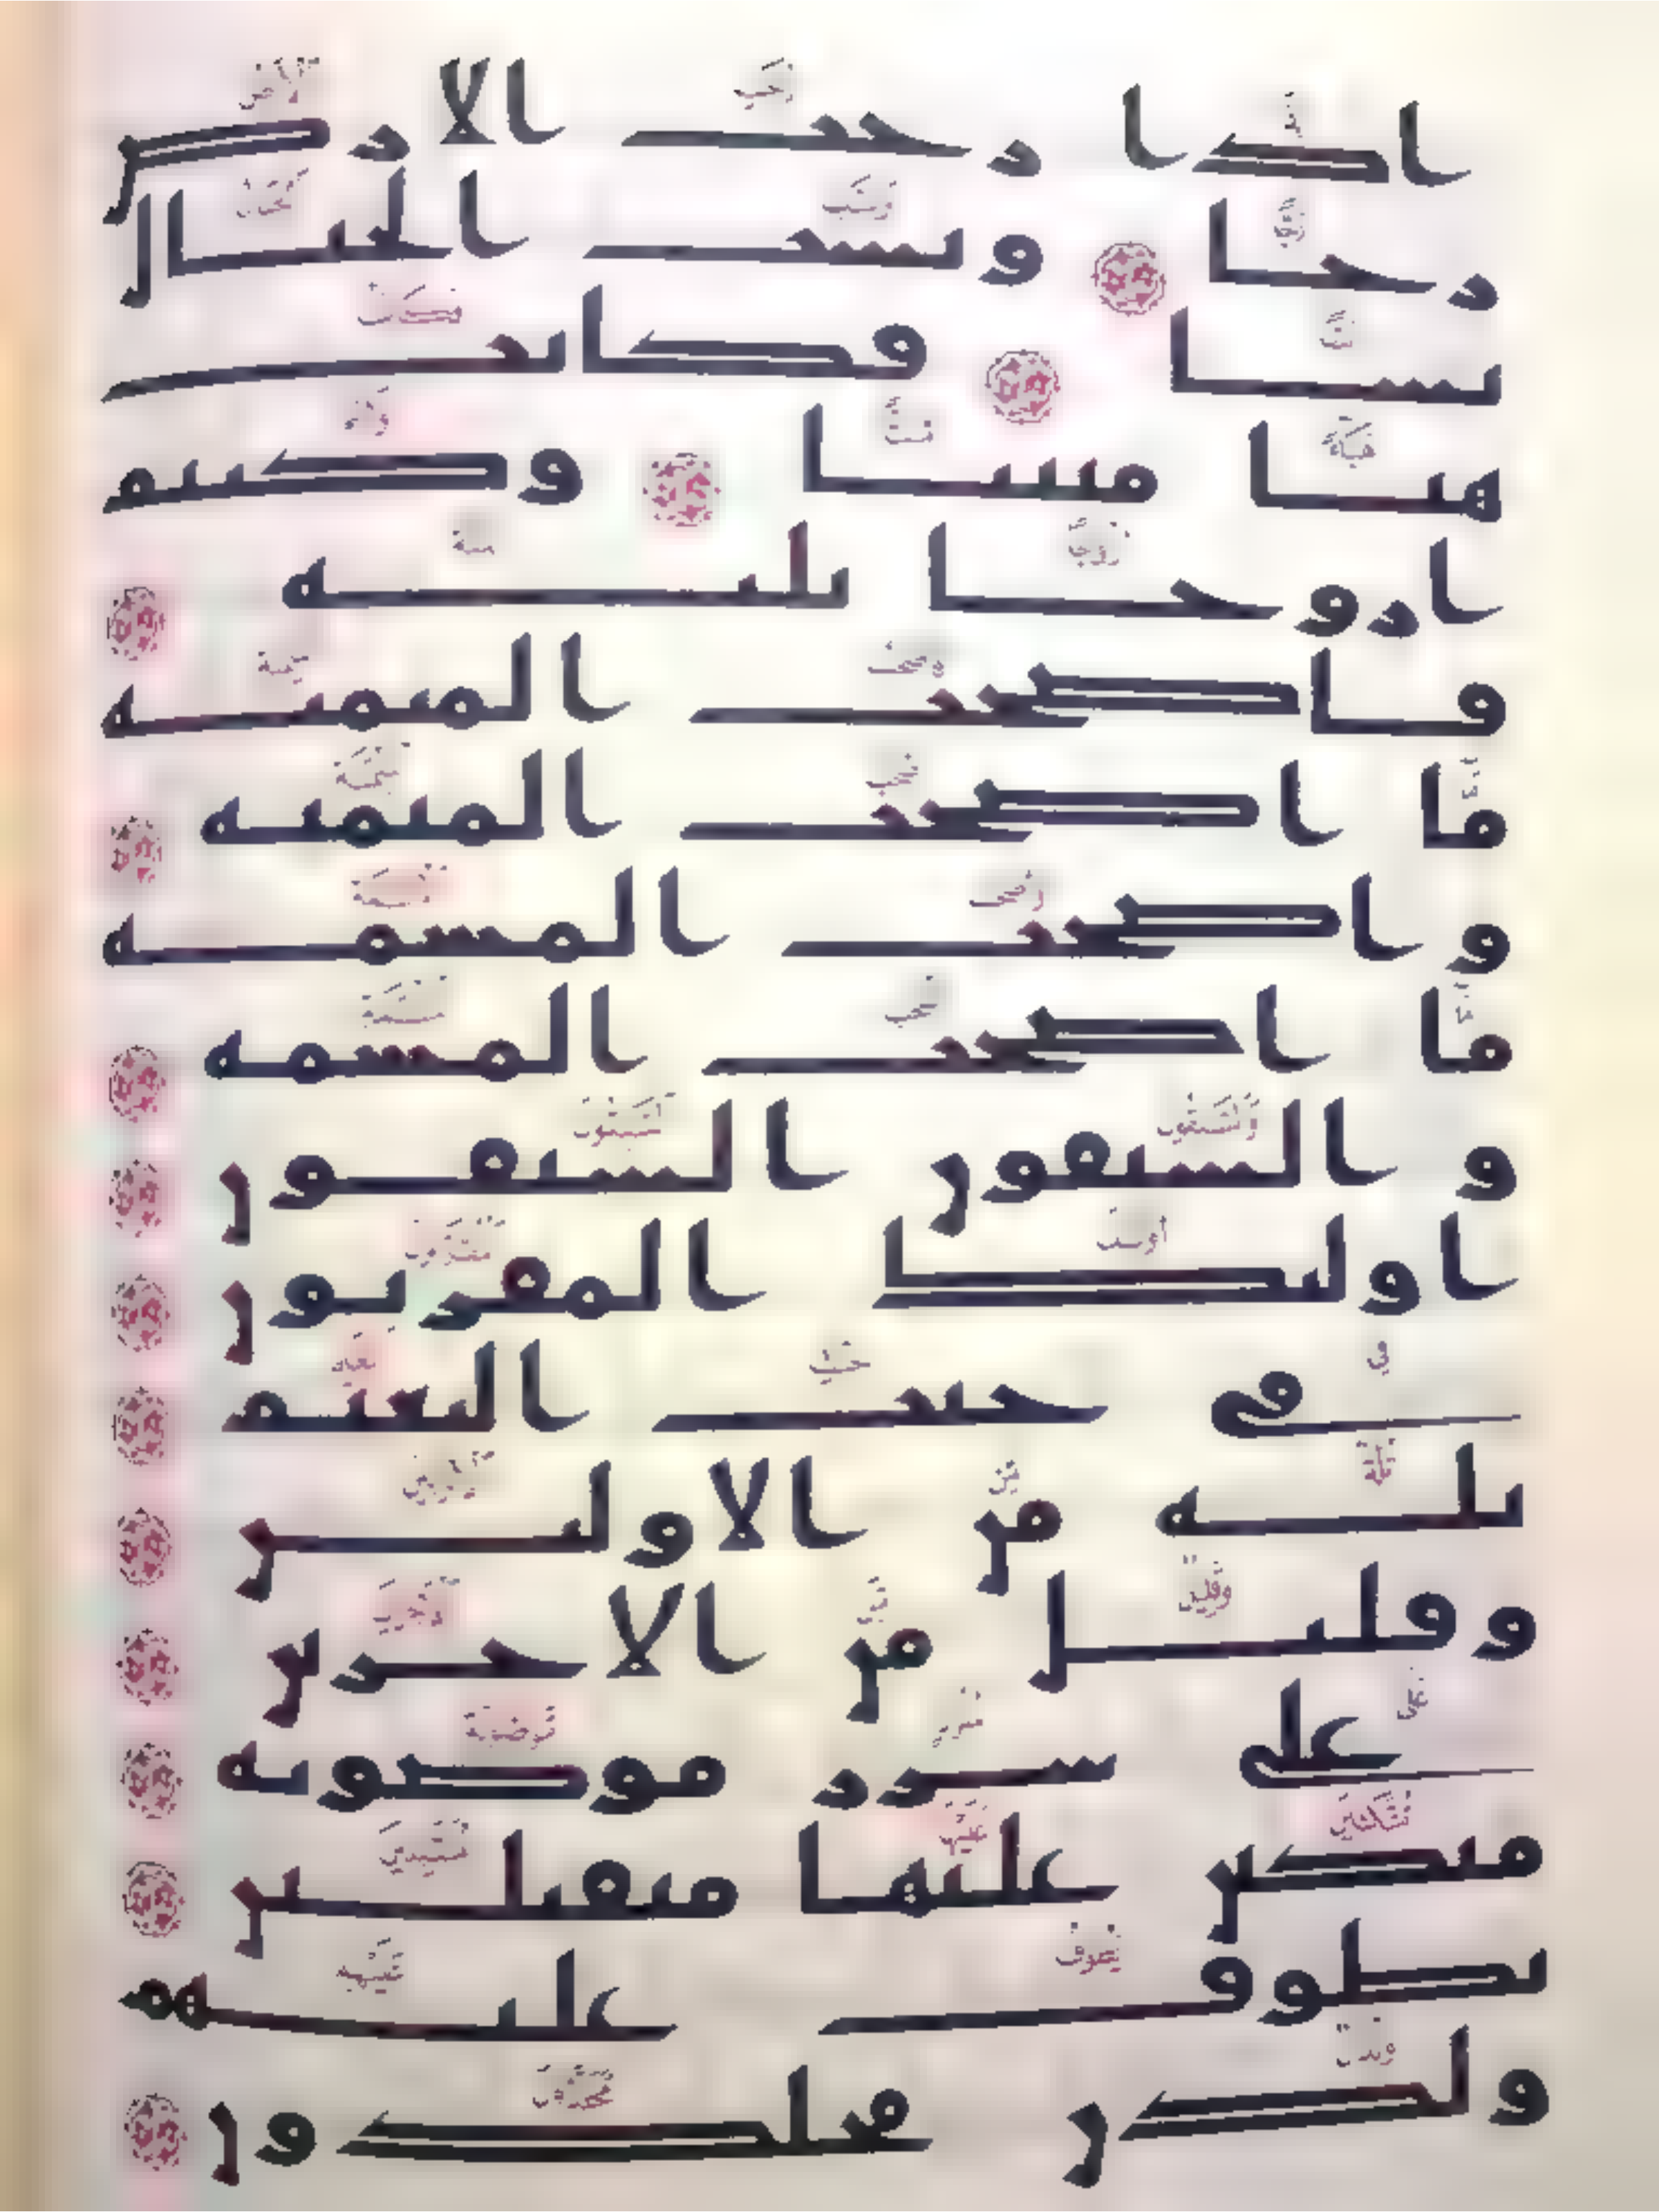 اذا رجت الارض
رجا وبست الجبال
بسا فكانت
هبا منبثا وكنتم
ازوجا ثلثه
فاصحب الميمنه
ما اصحب الميمنه
واصحب المشمه
ما اصحب المشمه
والسبقون السبقون
اولئك المقربون
في جنت النعيم
ثله من الاولين
وقليل من الاخرين
على سرر موضونه
متكين عليها متقبلين
يطوف عليهم
ولدن مخلدون